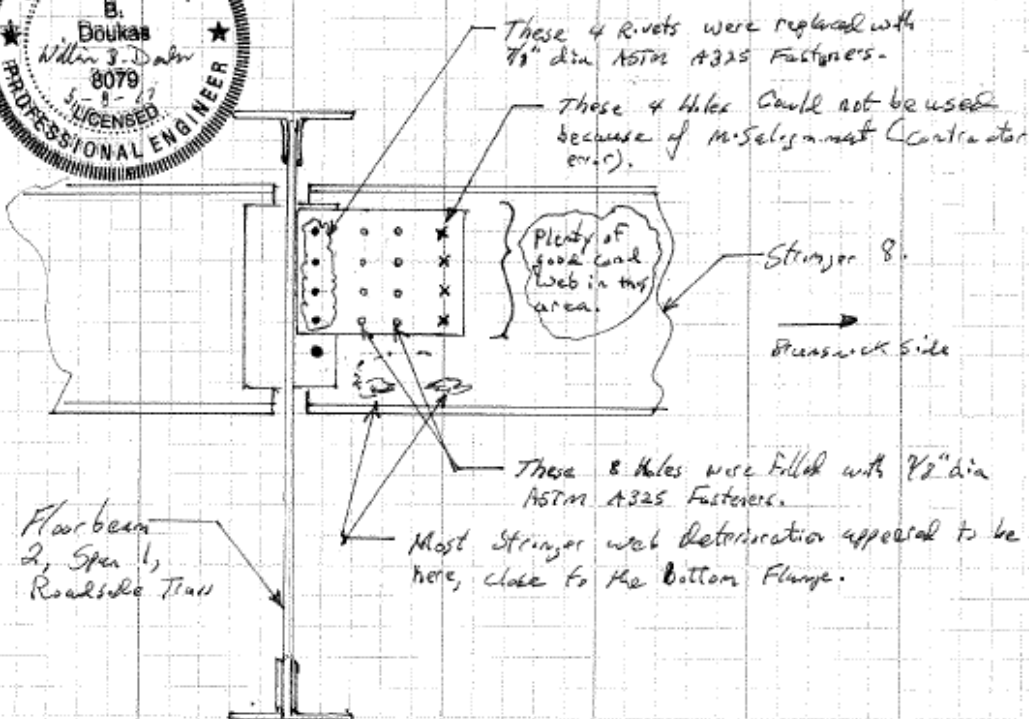 B.
Doukas
8079
LICENSED
PROFESSIONAL ENGINEER
These 4 Rivets were replaced with
7/8" dia ASTM A325 Fasteners.
These 4 Holes Could not be used
because of misalignment (contractor
error).
Plenty of
good cond
Web in this
area.
Stringer 8.
Brunswick Side
These 8 Holes were Filled with 7/8" dia
ASTM A325 Fasteners.
Most Stringer web deterioration appeared to be
here, close to the Bottom Flange.
Floorbeam
2, Span 1,
Roadside Truss